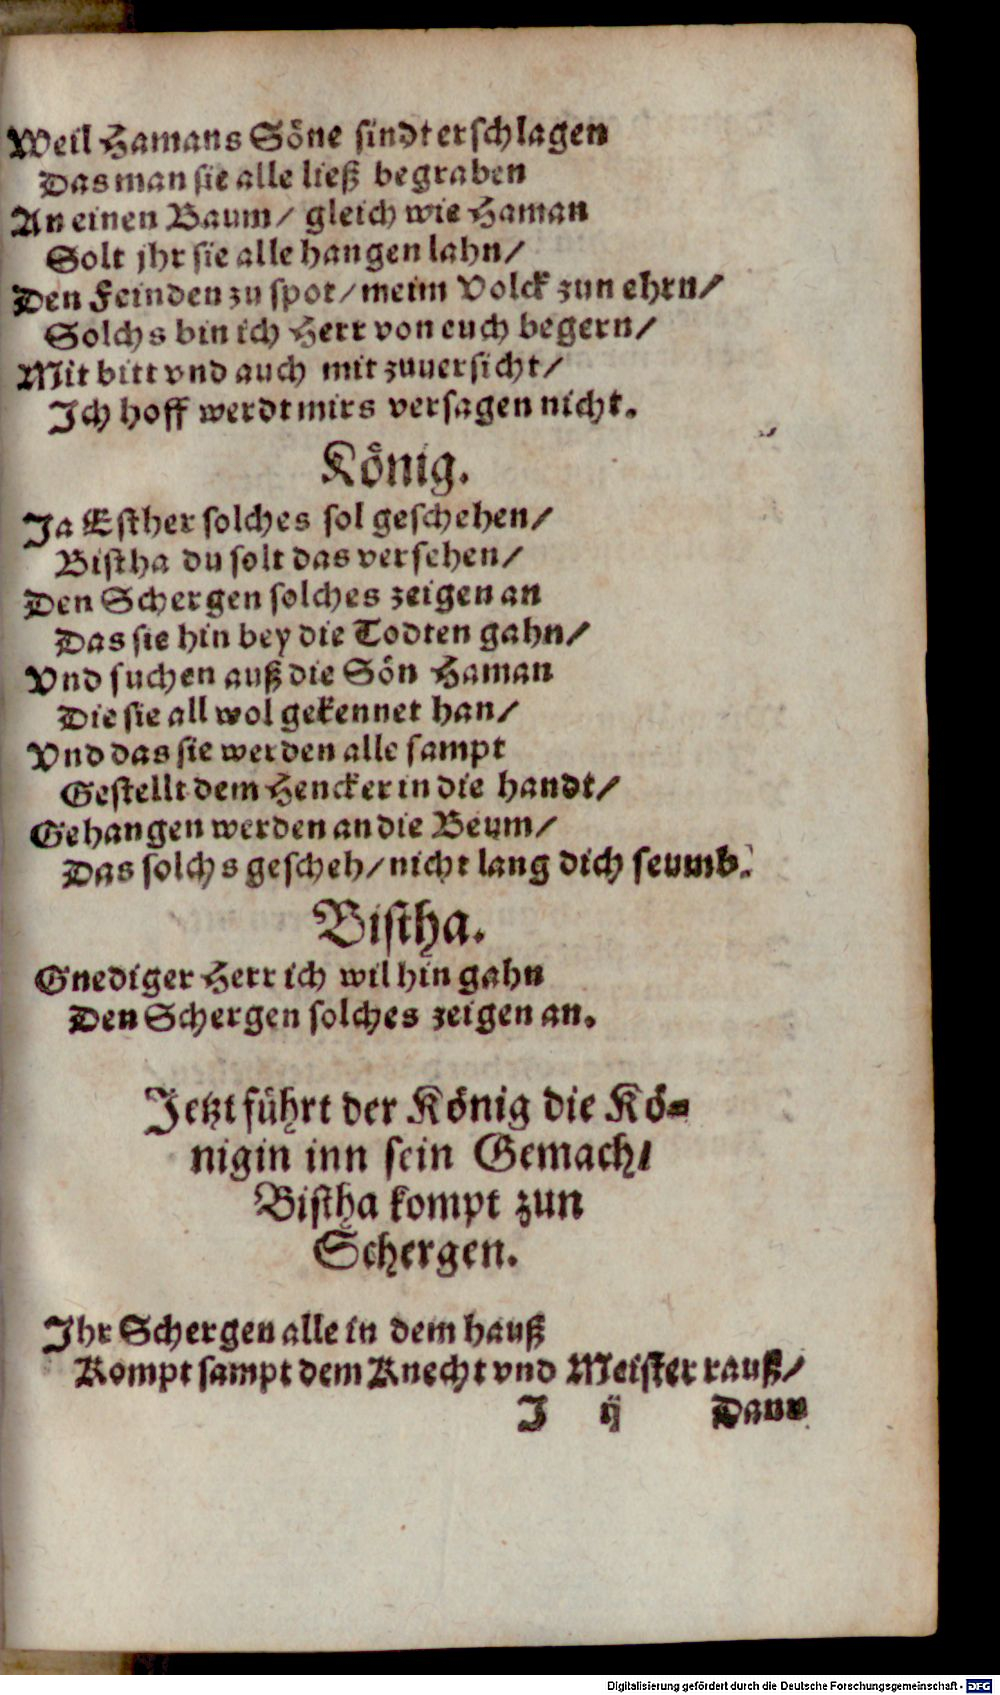 Weil Hamans Söne sindt erschlagen
Das man sie alle ließ begraben
An einen Baum / gleich wie Haman
Solt jhr sie alle hangen lahn /
Den Feinden zu spot / meim Volck zun ehrn /
Solchs bin ich Herr von euch begern /
Mit bitt vnd auch mit zuuersicht /
Ich hoff werdt mirs versagen nicht.
König.
Ja Esther solches sol geschehen /
Bistha du solt das versehen /
Den Schergen solches zeigen an
Das sie hin bey die Todten gahn /
Vnd suchen auß die Sön Haman
Die sie all wol gekennet han /
Vnd das sie werden alle sampt
Gestellt dem Hencker in die handt /
Gehangen werden an die Beum /
Das solchs gescheh / nicht lang dich seumb.
Bistha.
Gnediger Herr ich wil hin gahn
Den Schergen solches zeigen an.
Jetzt führt der König die Kö-
nigin inn sein Gemach /
Bistha kompt zun
Schergen.
Ihr Schergen alle in dem hauß
Kompt sampt dem Knecht vnd Meister rauß /
J ij Dann
Digitalisierung gefördert durch die Deutsche Forschungsgemeinschaft - DFG